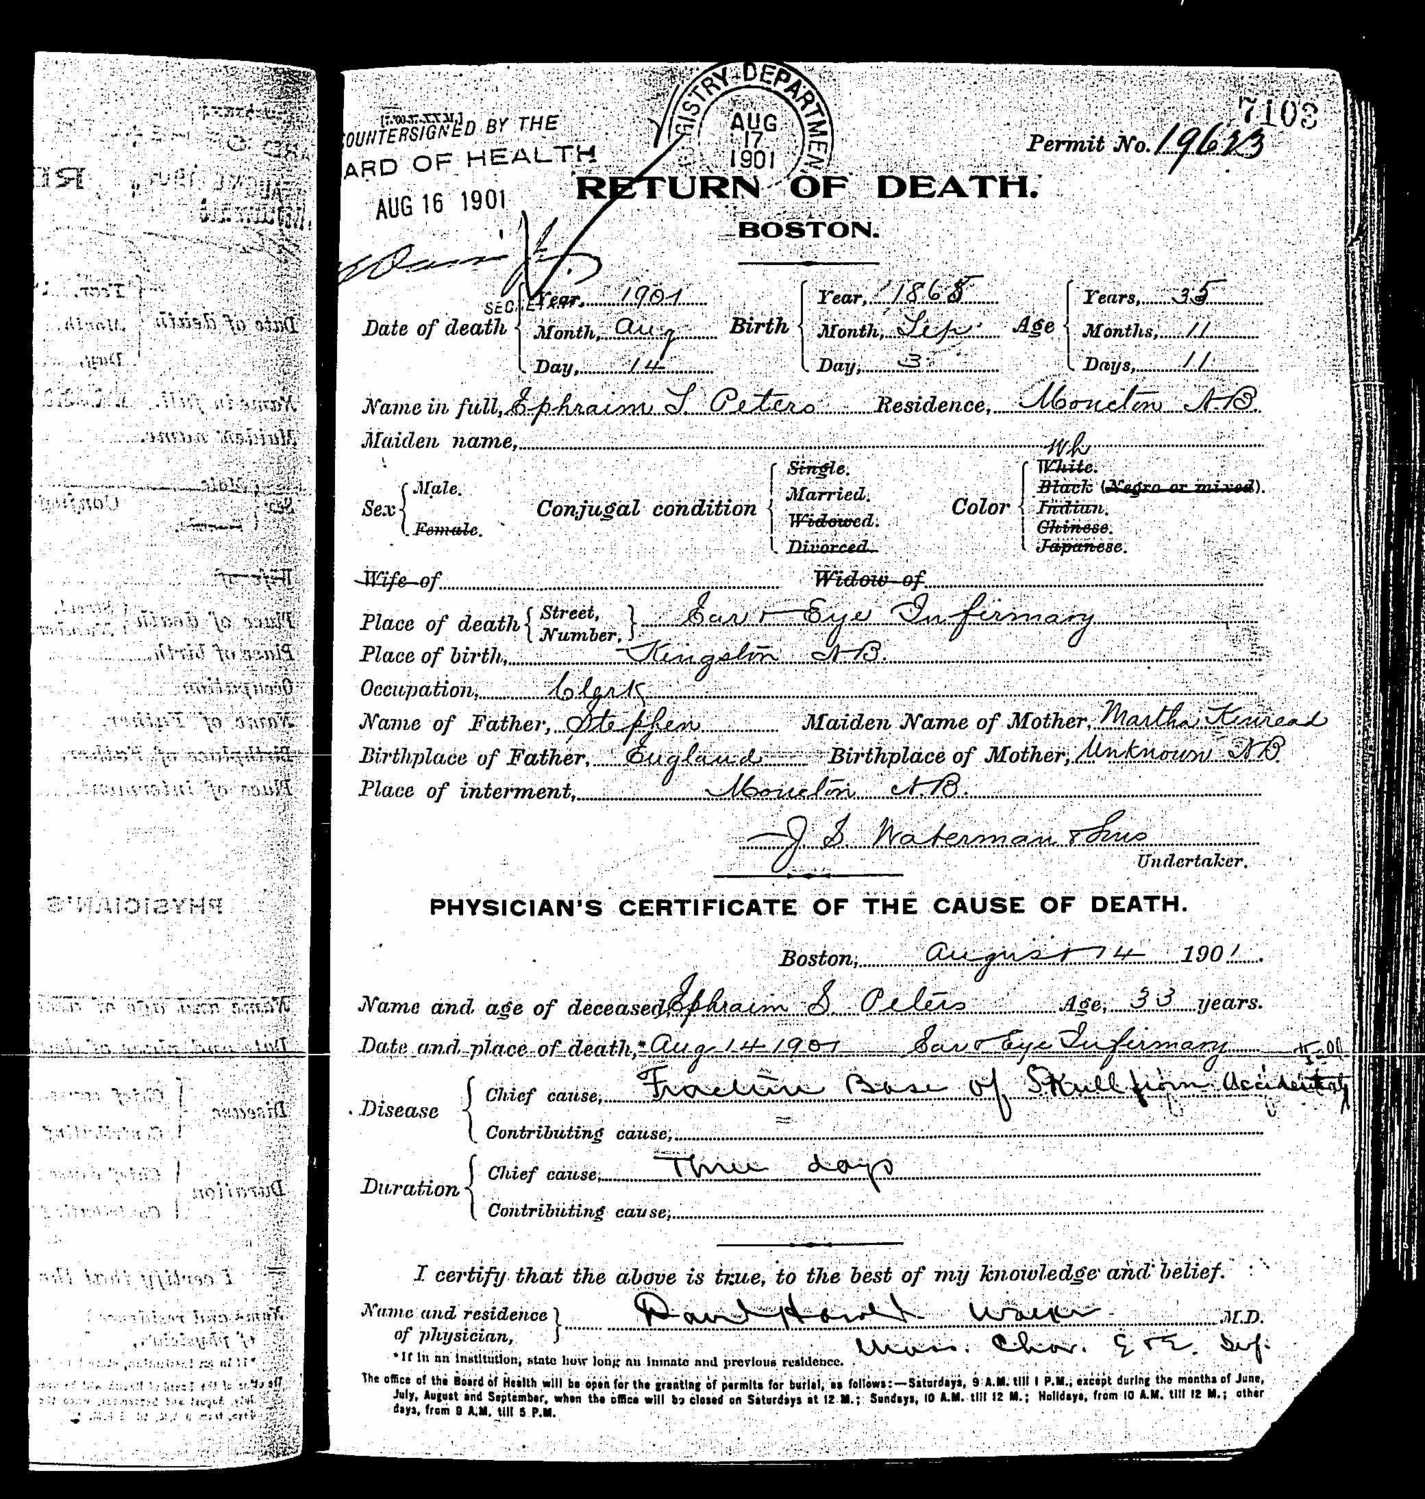 7103
COUNTERSIGNED BY THE
BOARD OF HEALTH
AUG 16 1901
REGISTRY DEPARTMENT
AUG
17
1901
Permit No. 19623
RETURN OF DEATH.
BOSTON.
Date of death { Year, 1901 Month, Aug Day, 14 Birth { Year, 1865 Month, Sep Day, 3 Age { Years, 35 Months, 11 Days, 11
Name in full, Ephraim S Peters Residence, Moncton N.B.
Maiden name,
Sex { Male. Female. Conjugal condition { Single. Married. Widowed. Divorced. Color { Wh White. Black (Negro or mixed). Indian. Chinese. Japanese.
Wife of Widow of
Place of death { Street, Number, } Ear & Eye Infirmary
Place of birth, Kingston N.B.
Occupation, Clerk
Name of Father, Stephen Maiden Name of Mother, Martha Kinread
Birthplace of Father, England Birthplace of Mother, Unknown N.B.
Place of interment, Moncton N.B.
J S Waterman & Sons
Undertaker.
PHYSICIAN'S CERTIFICATE OF THE CAUSE OF DEATH.
Boston, August 14 1901.
Name and age of deceased, Ephraim S. Peters Age, 33 years.
Date and place of death,* Aug 14 1901 Ear & Eye Infirmary
Disease { Chief cause, Fracture Base of Skull from Accidental Fall
Contributing cause, =
Duration { Chief cause, Three days
Contributing cause,
I certify that the above is true, to the best of my knowledge and belief.
Name and residence of physician, } David Harold Walker M.D.
Mass. Char. E & E. Inf.
*If in an institution, state how long an inmate and previous residence.
The office of the Board of Health will be open for the granting of permits for burial, as follows:—Saturdays, 9 A.M. till 1 P.M., except during the months of June,
July, August and September, when the office will be closed on Saturdays at 12 M.; Sundays, 10 A.M. till 12 M.; Holidays, from 10 A.M. till 12 M.; other
days, from 9 A.M. till 5 P.M.